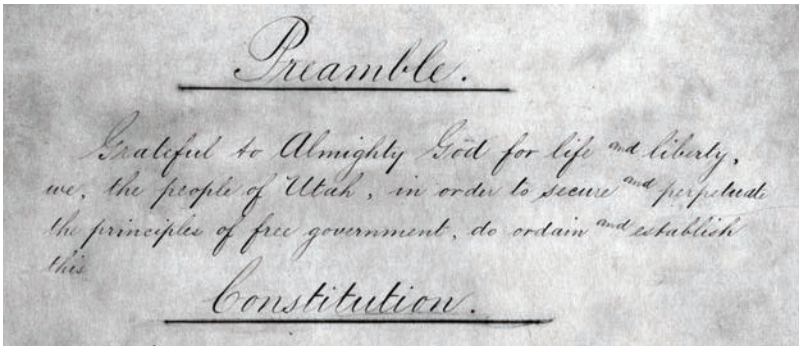 Preamble.
Grateful to Almighty God for life and liberty,
we, the people of Utah, in order to secure and perpetuate
the principles of free government, do ordain and establish
this
Constitution.